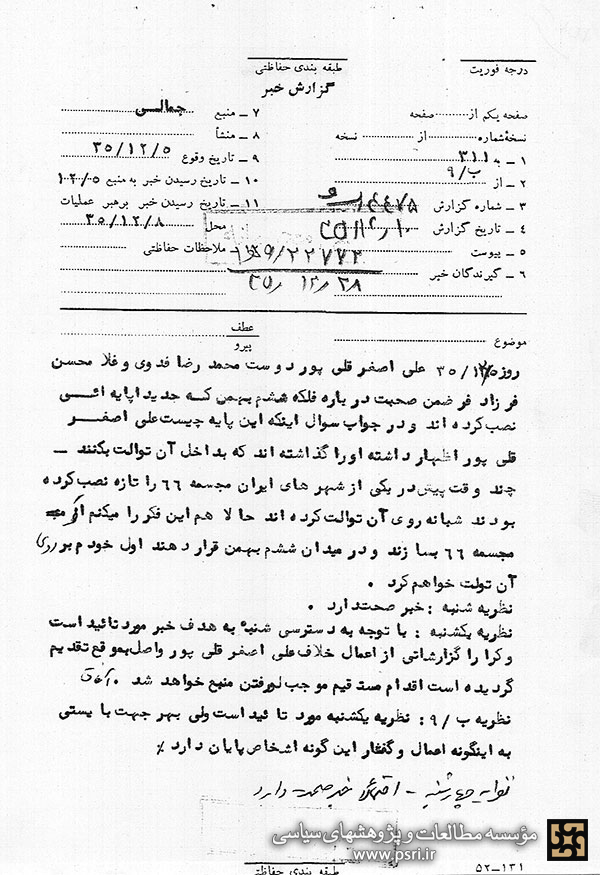 درجه فوریت
طبقه بندی حفاظتی
گزارش خبر
صفحه یکم از صفحه
نسخه شماره از نسخه
۱ ــ به ۳۱۱
۲ ــ از ۹/ب
۳ ــ شماره گزارش
۴ ــ تاریخ گزارش
۵ ــ پیوست
۶ ــ گیرندگان خبر
۷ ــ منبع جمالی
۸ ــ منشأ
۹ ــ تاریخ وقوع ۳۵/۱۲/۵
۱۰ ــ تاریخ رسیدن خبر به منبع ۱۲/۰۵
۱۱ ــ تاریخ رسیدن خبر برهبر عملیات
محل ۳۵/۱۲/۸
ملاحظات حفاظتی
۲۲۷۷۲
۳۵٫۱۲٫۲۸
موضوع
عطف
پیرو
روز ۳۵/۱۲/۵ علی اصغر قلی پور دوست محمد رضا فدوی و غلا محسن
فرزاد فر ضمن صحبت در باره فلکه ششم بهمن که جدیدا پایه ائی
نصب کرده اند و در جواب سوال اینکه این پایه چیست علی اصغر
قلی پور اظهار داشته او را گذاشته اند که بداخل آن توالت بکنند ــ
چند وقت پیش در یکی از شهر های ایران مجسمه ۶۶ را تازه نصب کرده
بودند شبانه روی آن توالت کرده اند حالا هم این فکر را میکنم اگر
مجسمه ۶۶ بسازند و در میدان ششم بهمن قرار دهند اول خودم بر روی
آن تولت خواهم کرد .
نظریه شنبه : خبر صحت دارد .
نظریه یکشنبه : با توجه به دسترسی شنبه به هدف خبر مورد تائید است
و کرا را گزارشاتی از اعمال خلاف علی اصغر قلی پور واصل بموقع تقدیم
گردیده است اقدام مستقیم موجب لو رفتن منبع خواهد شد .
نظریه ۹/ب : نظریه یکشنبه مورد تائید است ولی بهر جهت با یستی
به اینگونه اعمال و گفتار این گونه اشخاص پایان دارد ٪
نظریه چهارشنبه ـ خبر صحت دارد
مؤسسه مطالعات و پژوهشهای سیاسی
www.psri.ir
طبقه بندی حفاظتی
۵۲ــ۱۳۱